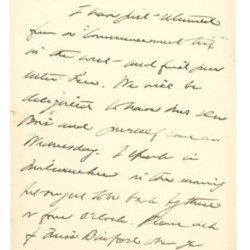 I have just returned
from a "Commencement trip"
in the west - and find your
letter here. We will be
delighted to have Mrs
and yourself come on
Wednesday. I speak in
Milwaukee in the morning
but hope to be back by three
or four o'clock. Please ask
Miss Binford